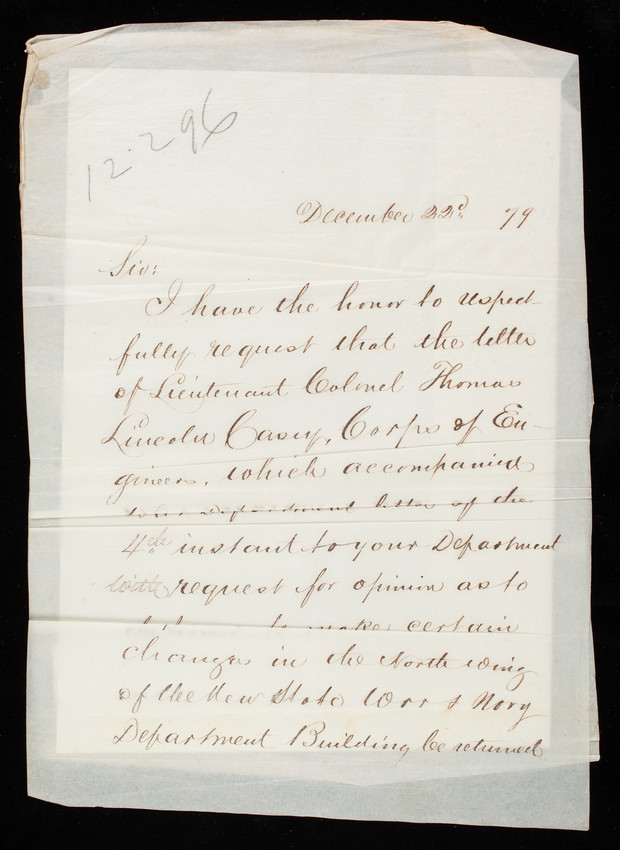 12.296
December 22d. 79
Sir:
I have the honor to respect-
fully request that the letter
of Lieutenant Colonel Thomas
Lincoln Casey, Corps of En-
gineers, which accompanied
Department letter of the
4th. instant to your Department
with request for opinion as to
to make certain
changes in the North wing
of the New State War & Navy
Department Building, be returned